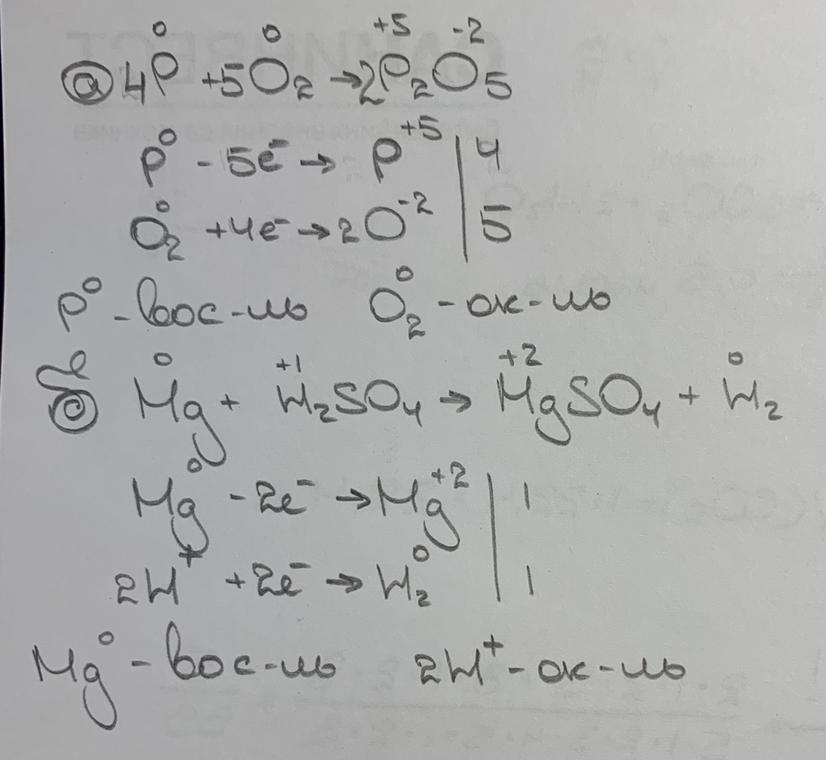 а) 4P⁰ + 5O₂⁰ → 2P₂⁺⁵O₅⁻²
P⁰ - 5e⁻ → P⁺⁵ | 4
O₂⁰ + 4e⁻ → 2O⁻² | 5
P⁰ - вос-ль O₂⁰ - ок-ль
б) Mg⁰ + H₂⁺¹SO₄ → Mg⁺²SO₄ + H₂⁰
Mg⁰ - 2e⁻ → Mg⁺² | 1
2H⁺ + 2e⁻ → H₂⁰ | 1
Mg⁰ - вос-ль 2H⁺ - ок-ль